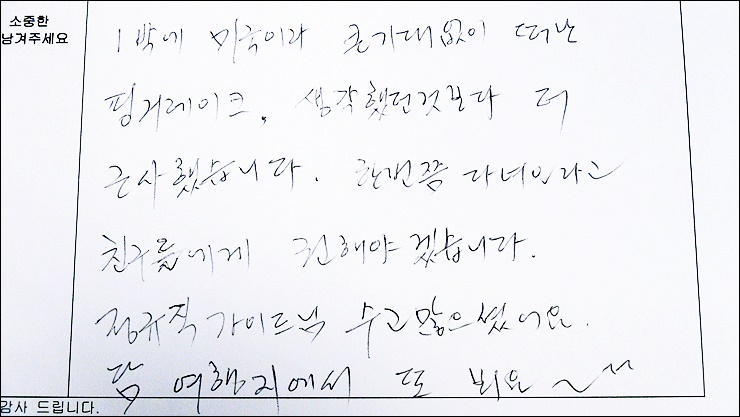 소중한
남겨주세요
1박에 미국이라 큰기대없이 떠난
핑거레이크, 생각했던것보다 더
근사했습니다. 한번쯤 다녀오라고
친구들에게 권해야겠습니다.
정규직 가이드님 수고많으셨어요.
담 여행지에서 또 뵈요 ~
감사 드립니다.